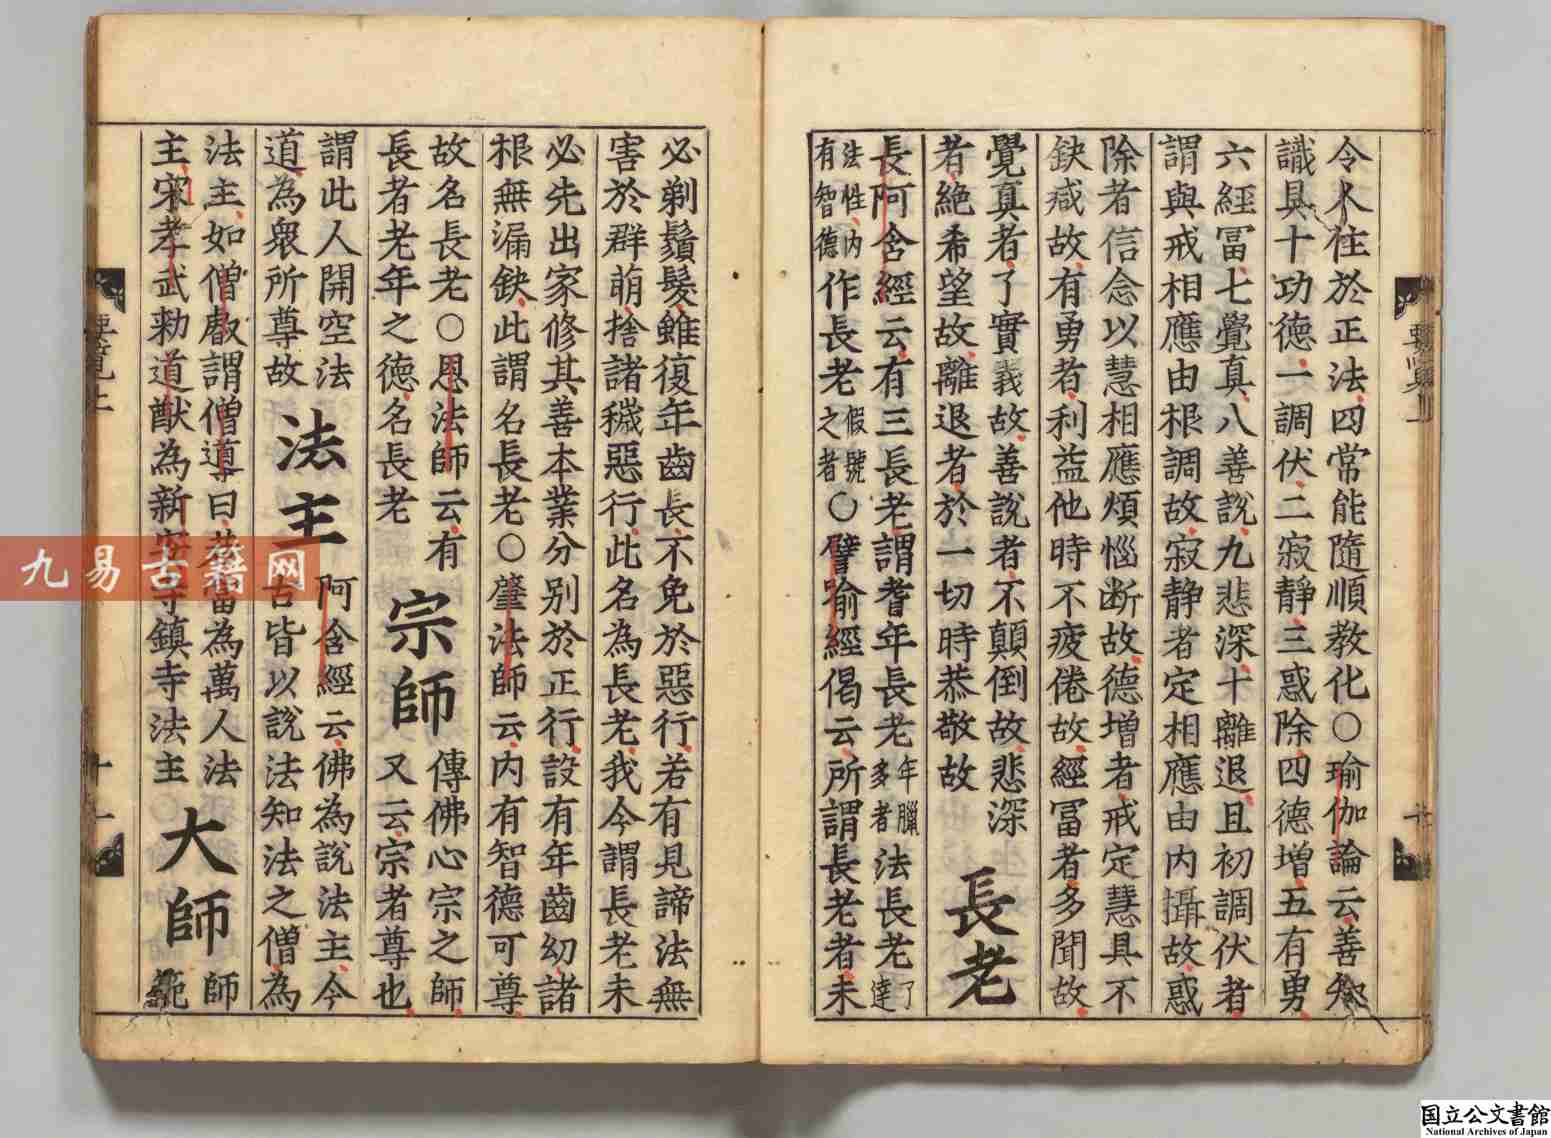 令久住於正法四常能隨順教化〇瑜伽論云善知
識具十功德一調伏二寂靜三惑除四德增五有勇
六經冨七覺真八善說九悲深十離退且初調伏者
謂與戒相應由根調故寂靜者定相應由內攝故惑
除者信念以慧相應煩惱断故德增者戒定慧具不
缺減故有勇者利益他時不疲倦故經冨者多聞故
覺真者了實義故善說者不顛倒故悲深
者絶希望故離退者於一切時恭敬故
長老
長阿含經云有三長老謂耆年長老年臘多者法長老了達
法性內有智德作長老假號之者〇譬喻經偈云所謂長老者未
必剃鬚髮雖復年齒長不免於惡行若有見諦法無
害於群萌捨諸穢惡行此名為長老我今謂長老未
必先出家修其善本業分別於正行設有年齒幼諸
根無漏缺此謂名長老〇肇法師云內有智德可尊
故名長老〇恩法師云有
長者老年之德名長老
宗師
傳佛心宗之師
又云宗者尊也
謂此人開空法
道為衆所尊故
法主
阿含經云佛為說法主今
古皆以說法知法之僧為
法主如僧叡謂僧導曰君當為萬人法
主宋孝武勅道猷為新安寺鎮寺法主
大師
師
範
要覽上
十一
九易古籍网
国立公文書館
National Archives of Japan